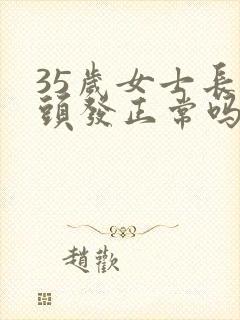 35歲女士長
頭發正常嗎
趙歡